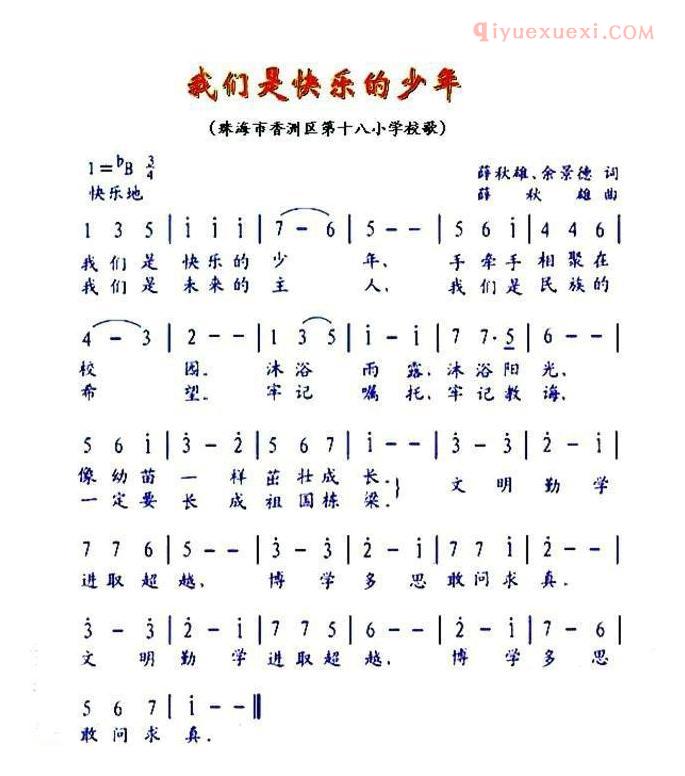 qiyuexuexi.com
我们是快乐的少年
(珠海市香洲区第十八小学校歌)
1=ᵇB 3/4
薛秋雄、余景德 词
快乐地
薛 秋 雄 曲
1 3 5 | i̇ i̇ i̇ | 7 – 6 | 5 – – | 5 6 i̇ | 4 4 6 |
我们是 快乐的 少 年、 手牵手 相聚在
我们是 未来的 主 人、 我们是 民族的
4 – 3 | 2 – – | 1 3 5 | i̇ – i̇ | 7 7· 5̲ | 6 – – |
校 园。 沐浴 雨露、沐浴阳光、
希 望。 牢记 嘱托、牢记教诲、
5 6 i̇ | 3̇ – 2̇ | 5 6 7 | i̇ – – | 3̇ – 3̇ | 2̇ – i̇ |
像幼苗 一 样 茁壮成长。} 文 明 勤 学
一定要 长 成 祖国栋梁。
7 7 6 | 5 – – | 3̇ – 3̇ | 2̇ – i̇ | 7 7 i̇ | 2̇ – – |
进取超越、 博 学 多 思 敢问求真。
3̇ – 3̇ | 2̇ – i̇ | 7 7 5 | 6 – – | 2̇ – i̇ | 7 – 6 |
文 明 勤 学 进取超越、 博 学 多 思
5 6 7 | i̇ – – ‖
敢问求真。